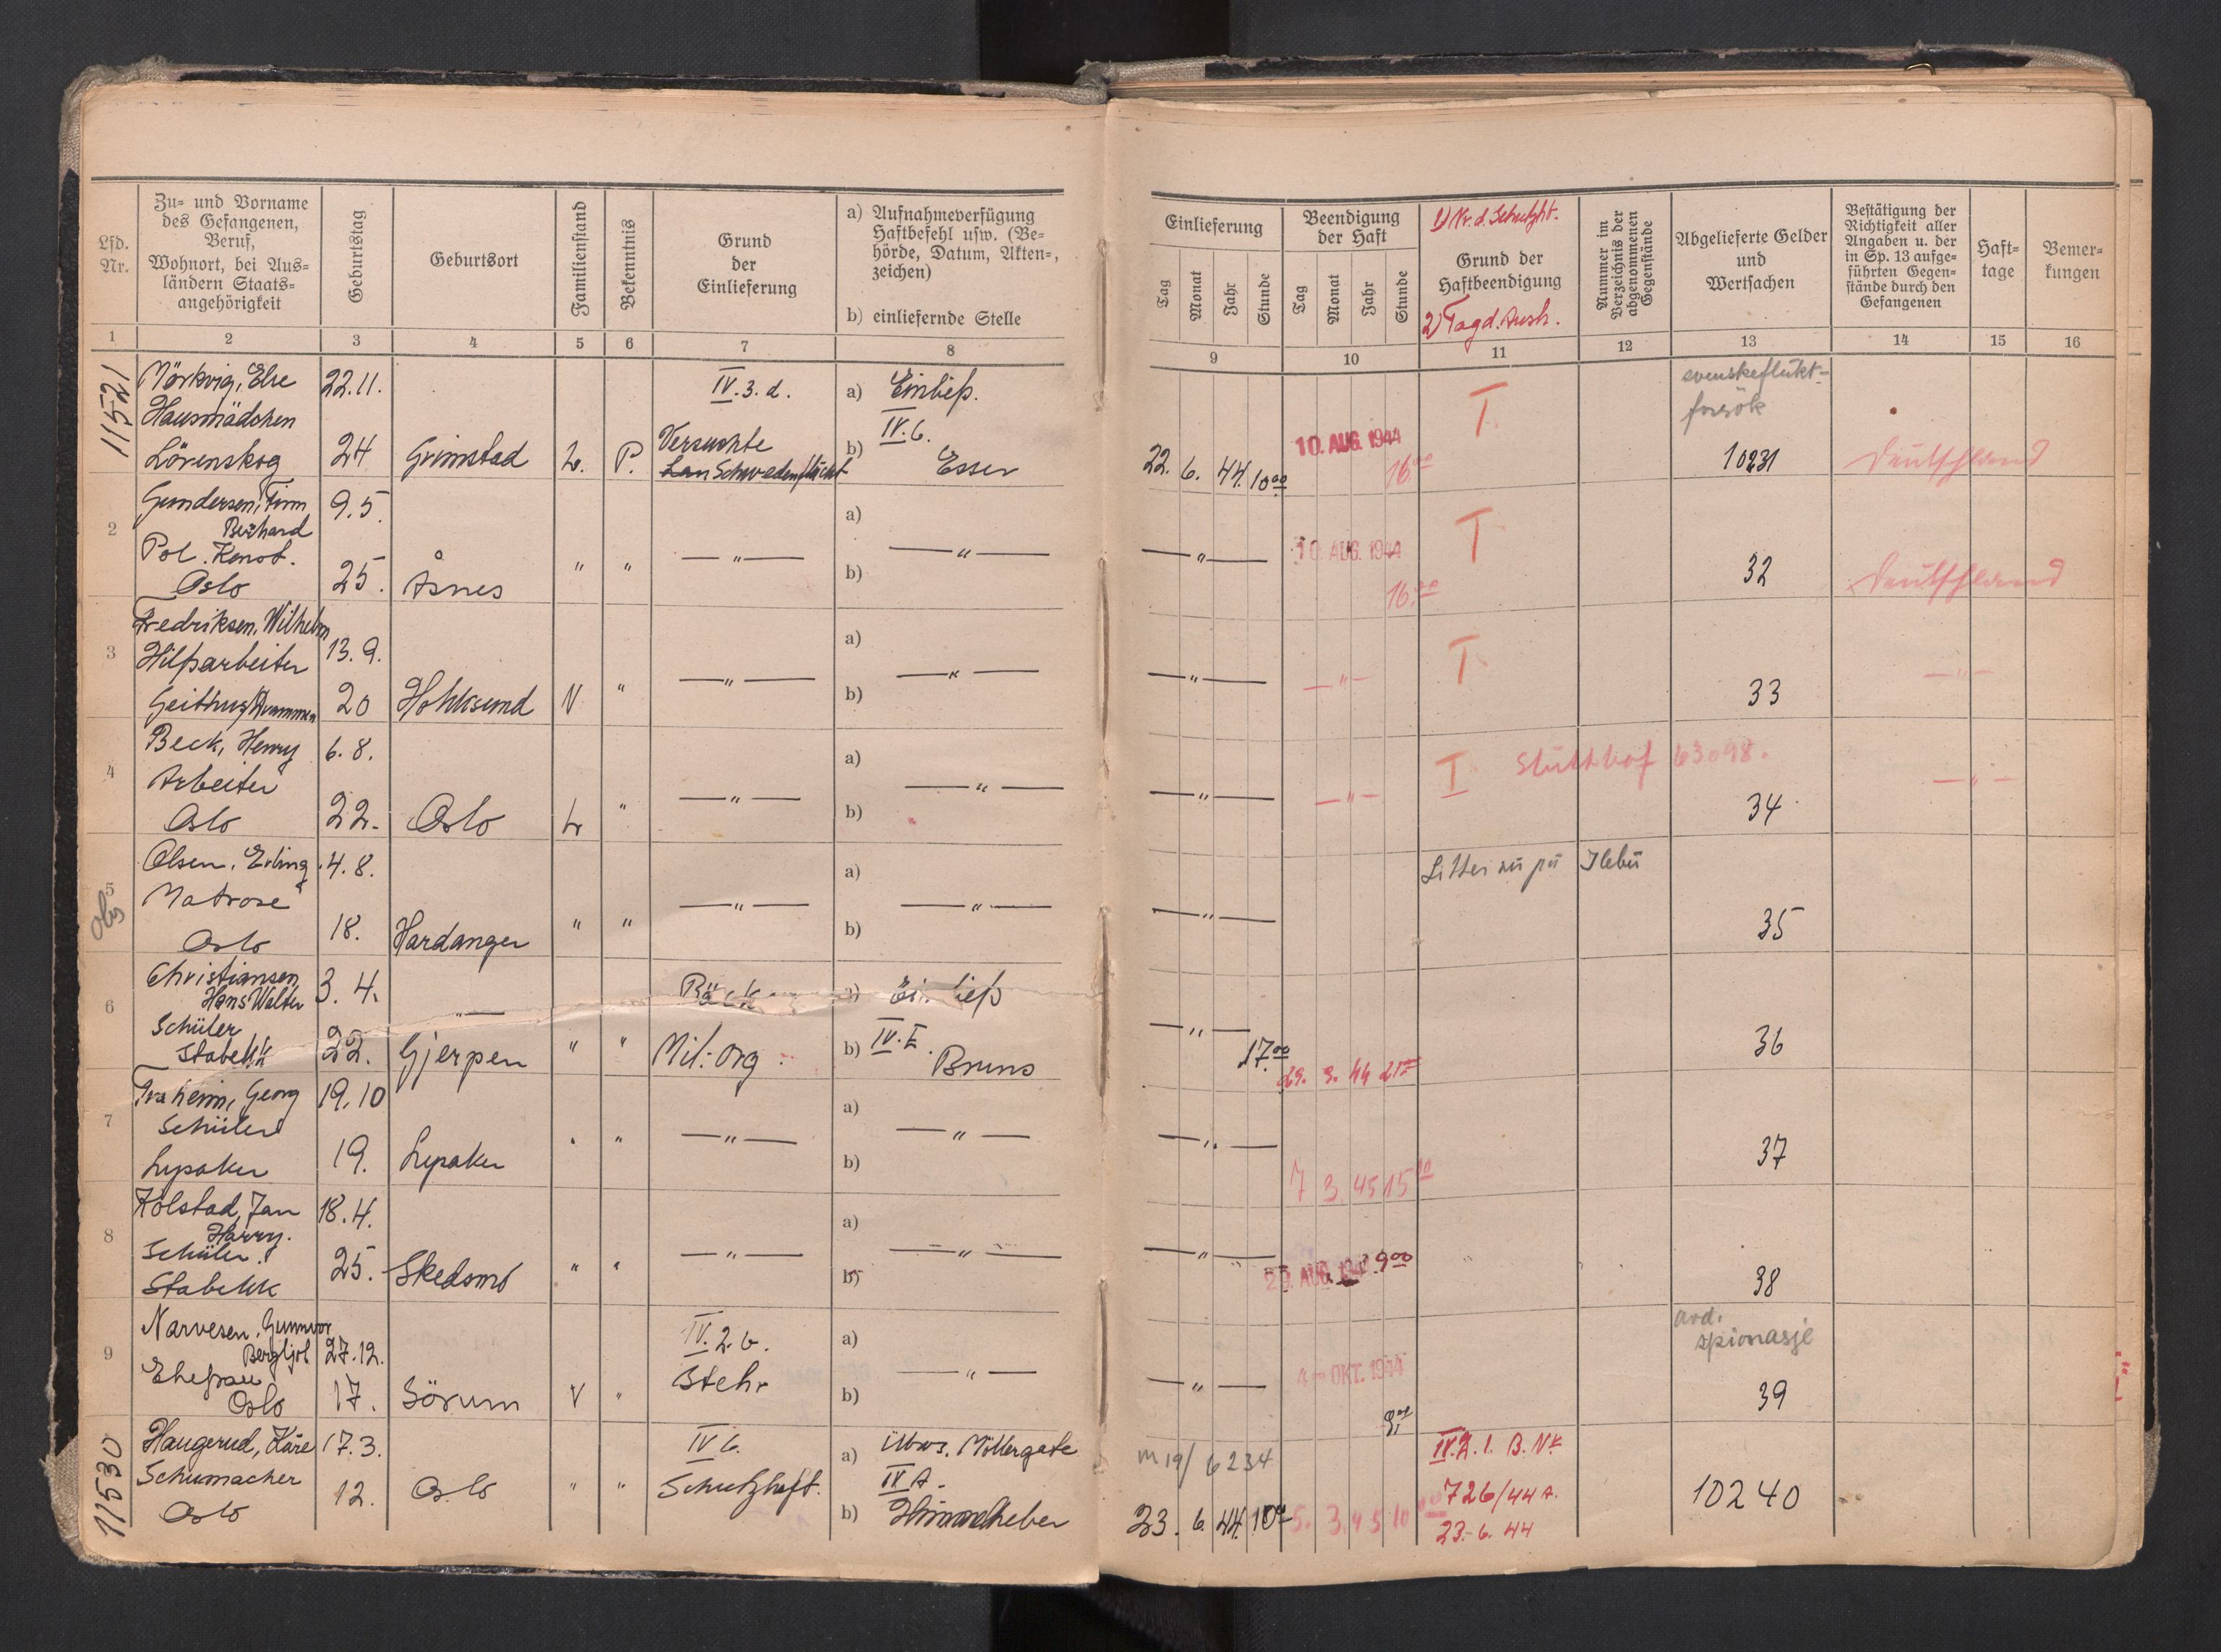 Lfd. Nr.
Zu- und Vorname des Gefangenen, Beruf, Wohnort, bei Ausländern Staatsangehörigkeit
Geburtstag
Geburtsort
Familienstand
Bekenntnis
Grund der Einlieferung
a) Aufnahmeverfügung Haftbefehl usw. (Behörde, Datum, Akten-, zeichen)
b) einliefernde Stelle
Einlieferung
Tag Monat Jahr Stunde
Beendigung der Haft
Tag Monat Jahr Stunde
1) Nr. d. Schutzht.
Grund der Haftbeendigung
2) Tag d. Aush.
Nummer im Verzeichnis der abgenommenen Gegenstände
Abgelieferte Gelder und Wertsachen
Bestätigung der Richtigkeit aller Angaben u. der in Sp. 13 aufgeführten Gegenstände durch den Gefangenen
Hafttage
Bemerkungen
1 2 3 4 5 6 7 8 9 10 11 12 13 14 15 16
11521
Mörkvig, Else 22.11. IV.3.d. a) Einließ. T svenskeflukt-
Hausmädchen IV.6. forsök
Lörenskog 24 Grimstad L. P. Versuchte Schwedenflucht b) Esser 22. 6. 44. 10 00 10. AUG. 1944 16 00 10231 Deutschland
2 Gundersen, Finn 9.5. a)
Bernhard T
Pol. Kenot. — " — — " — — " — 10. AUG. 1944
Oslo 25. Åsnes " " b) 16.00 32 Deutschland
Fredriksen, Wilhelm a)
3 Hilfsarbeiter 13.9. — " — — " — — " — — " — T. — " —
Geithus/Drammen 20 Hokksund V " b) 33
Beck, Henry 6.8. a) T Stutthof 63098.
4 Arbeiter — " — — " — — " — — " — — " —
Oslo 22. Oslo L " b) 34
Olsen, Erling 4.8. a) Sitter nu på Ilebu
5 Matrose — " — — " — — " —
obs Oslo 18. Hardanger " " b) 35
Christiansen, 3.4. a) Einließ
6 Hans Walter
Schüler — " —
Stabekk 22. Gjerpen " " Mil: Org. b) IV.E. Bruns 17 00 29. 9. 44 21 00 36
Traheim, Georg 19.10 a)
7 Schüler — " — — " — — " —
Lysaker 19. Lysaker " " b) 7 3. 45 15 00 37
Kolstad, Jan 18.4. a)
8 Harry.
Schüler. — " — — " — — " — 29. AUG. 9 00
Stabekk 25. Skedsmo " " b) 38
Narvesen, Gunnvor IV.2.b. a) avd.
9 Bergljot 27.12. spionasje
Ehefrau Stehr — " — — " — 4 - OKT. 1944
Oslo 17. Sörum V " b) 9 00 39
11530
Haugerud, Kåre 17.3. IV 6. a) Übws. Möllergate m 19/ 6234 IV.A.1. B. Nr.
Schumacher 12. Oslo " " Schutzhaft. IV A. 726/44 A. 10240
Oslo b) 23. 6. 44. 10 00 5. 3. 45 10 00 23.-6. 44